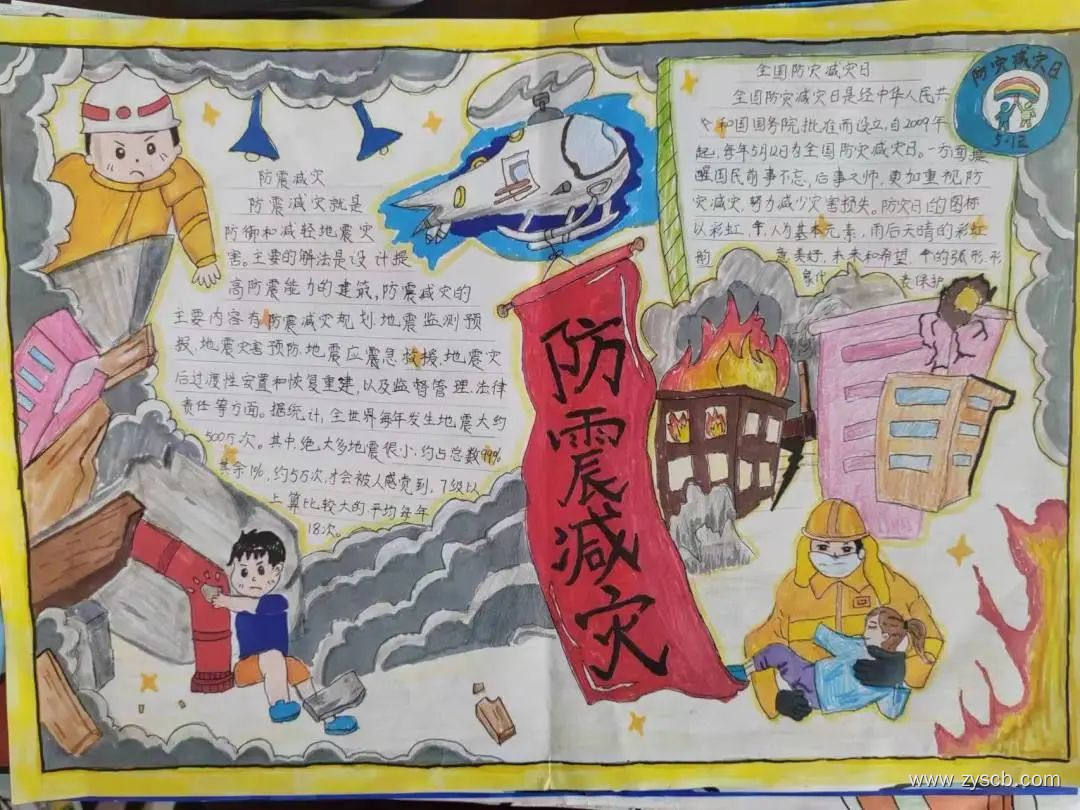 防震减灾
防震减灾就是
防御和减轻地震灾
害。主要的解法是设计提
高防震能力的建筑,防震减灾的
主要内容有防震减灾规划.地震监测预
报.地震灾害预防.地震应震急救援.地震灾
后过渡性安置和恢复重建,以及监督管理.法律
责任等方面。据统计,全世界每年发生地震大约
500万次。其中,绝大多地震很小,约占总数99%
其余1%,约5万次,才会被人感觉到,7级以
上算比较大的,平均每年
18次。
防震减灾
全国防灾减灾日
全国防灾减灾日是经中华人民共
和国国务院批准而设立,自2009年
起,每年5月12日为全国防灾减灾日。一方面提
醒国民前事不忘,后事之师,更加重视防
灾减灾,努力减少灾害损失。防灾日的图标
以彩虹,伞,人为基本元素,雨后天晴的彩虹
意美好,未来和希望,伞的弧形形
象代
表保护
防灾减灾日
5·12
www.zyscb.com